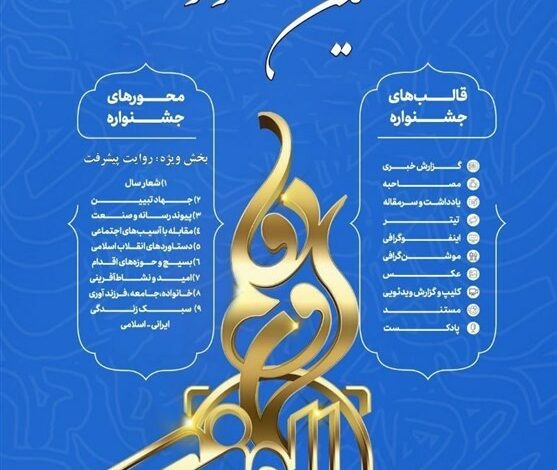 قالب‌های
جشنواره
گزارش خبری
مصاحبه
یادداشت و سرمقاله
تیتر
اینفوگرافی
موشن‌گرافی
عکس
کلیپ و گزارش ویدئویی
مستند
پادکست
محورهای
جشنواره
بخش ویژه: روایت پیشرفت
۱) شعار سال
۲) جهاد تبیین
۳) پیوند رسانه و صنعت
۴) مقابله با آسیب‌های اجتماعی
۵) دستاوردهای انقلاب اسلامی
۶) بسیج و حوزه‌های اقدام
۷) امید و نشاط‌آفرینی
۸) خانواده، جامعه، فرزندآوری
۹) سبک زندگی
ایرانی-اسلامی